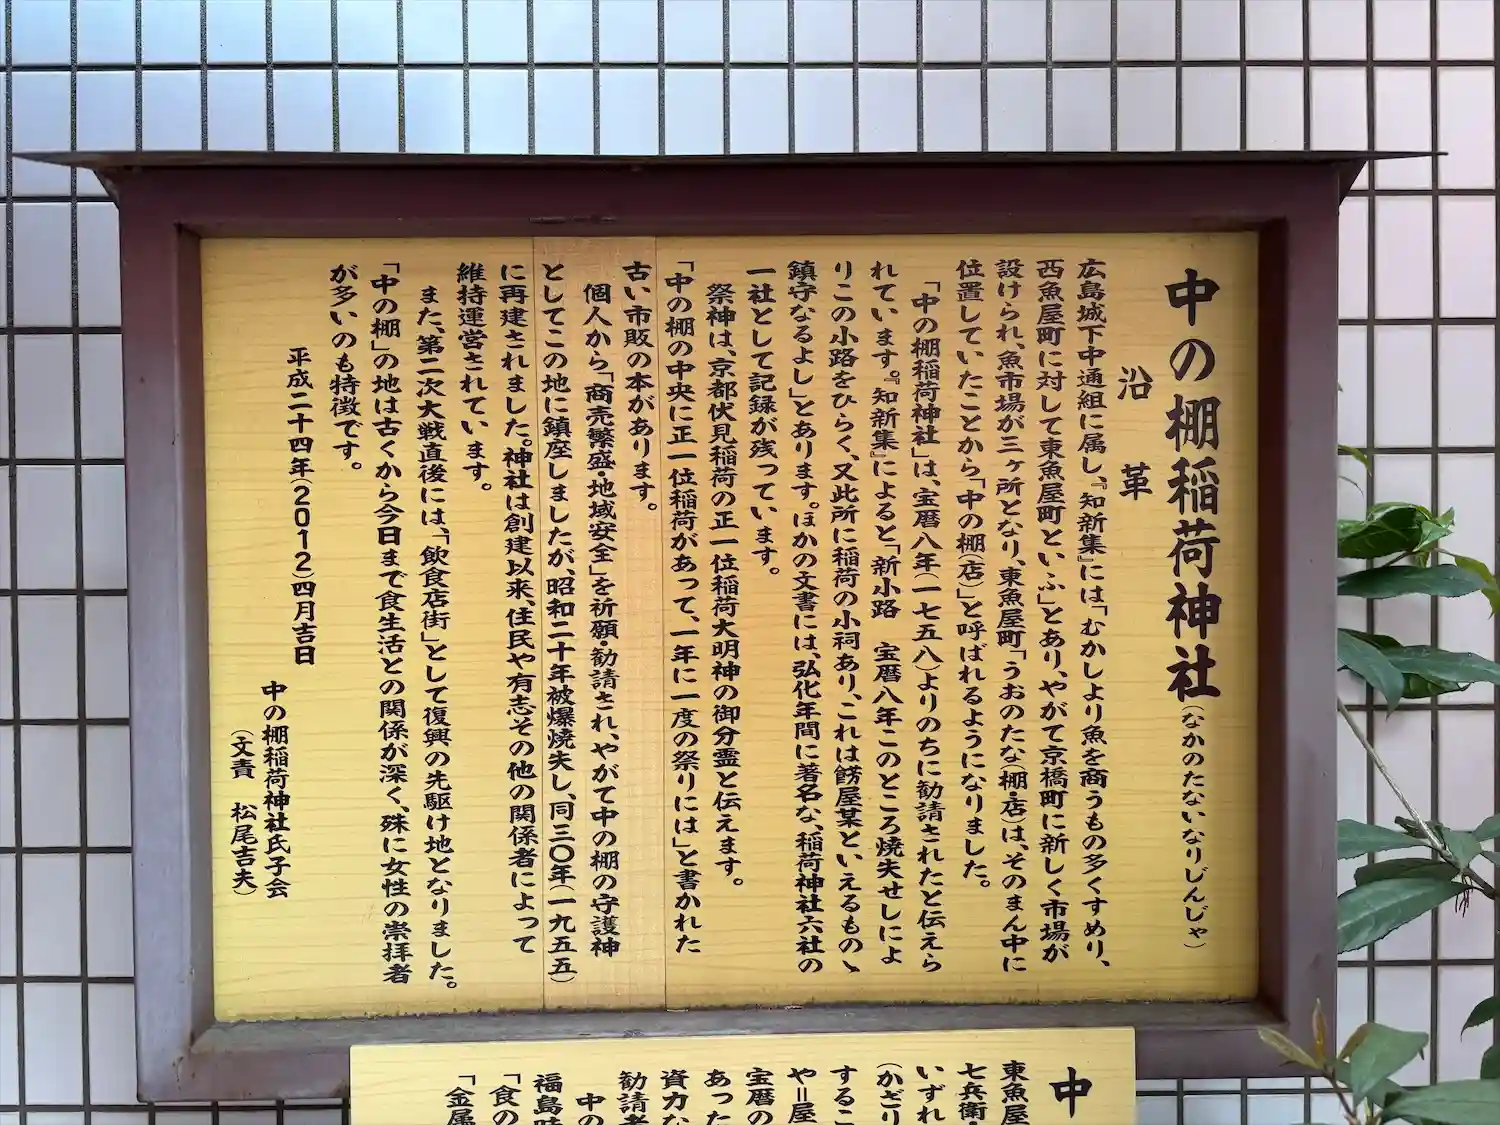 中の棚稲荷神社(なかのたないなりじんじゃ)
沿革
広島城下中通組に属し、『知新集』には「むかしより魚を商うもの多くすめり、
西魚屋町に対して東魚屋町といふ」とあり、やがて京橋町に新しく市場が
設けられ、魚市場が三ヶ所となり、東魚屋町「うおのたな(棚・店)は、そのまん中に
位置していたことから「中の棚(店)」と呼ばれるようになりました。
「中の棚稲荷神社」は、宝暦八年(一七五八)よりのちに勧請されたと伝えら
れています。『知新集』によると「新小路 宝暦八年このところ焼失せしによ
りこの小路をひらく、又此所に稲荷の小祠あり、これは餝屋某といえるものゝ
鎮守なるよし」とあります。ほかの文書には、弘化年間に著名な、稲荷神社六社の
一社として記録が残っています。
祭神は、京都伏見稲荷の正一位稲荷大明神の御分霊と伝えます。
「中の棚の中央に正一位稲荷があって、一年に一度の祭りには」と書かれた
古い市販の本があります。
個人から「商売繁盛・地域安全」を祈願・勧請され、やがて中の棚の守護神
としてこの地に鎮座しましたが、昭和二十年被爆焼失し、同三〇年(一九五五)
に再建されました。神社は創建以来、住民や有志その他の関係者によって
維持運営されています。
また、第二次大戦直後には、「飲食店街」として復興の先駆け地となりました。
「中の棚」の地は古くから今日まで食生活との関係が深く、殊に女性の崇拝者
が多いのも特徴です。
平成二十四年(2012)四月吉日
中の棚稲荷神社氏子会
(文責 松尾吉夫)
中
東魚屋
七兵衛・
いずれ
(かざり
するこ
や＝屋
宝暦の
あった
資力な
勧請者
中の
福島時
「食の
「金属